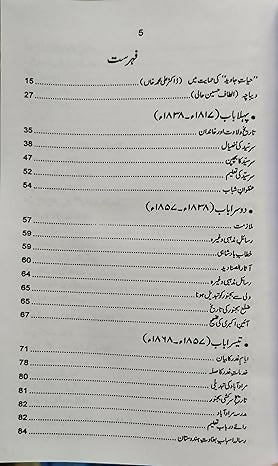 5
فہرست
"حیات جاوید" کی حمایت میں (ڈاکٹر علی محمد خاں) 15
دیباچہ (الطاف حسین حالی) 27
● پہلا باب (۱۸۱۷ء۔۱۸۳۸ء)
تاریخ ولادت اور خاندان 35
سرسید کی ننھیال 38
سرسید کا بچپن 47
سرسید کی تعلیم 52
عنفوان شباب 54
● دوسرا باب (۱۸۳۸ء۔۱۸۵۷ء)
ملازمت 57
رسائل مذہبی وغیرہ 59
خطاب بادشاہی 59
آثار الصنادید 60
رسائل مذہبی وغیرہ 64
دلی سے بجنور کو تبدیل ہونا 65
ضلع بجنور کی تاریخ 65
آئین اکبری کی تصحیح 67
● تیسرا باب (۱۸۵۷ء۔۱۸۶۸ء)
ایام غدر کا بیان 71
خدمات غدر کا صلہ 78
مرادآباد کی تبدیلی 80
تاریخ سرکشی بجنور 81
مدرسہ مرادآباد 82
رائے در باب تعلیم 82
رسالہ اسباب بغاوت ہندوستان 84